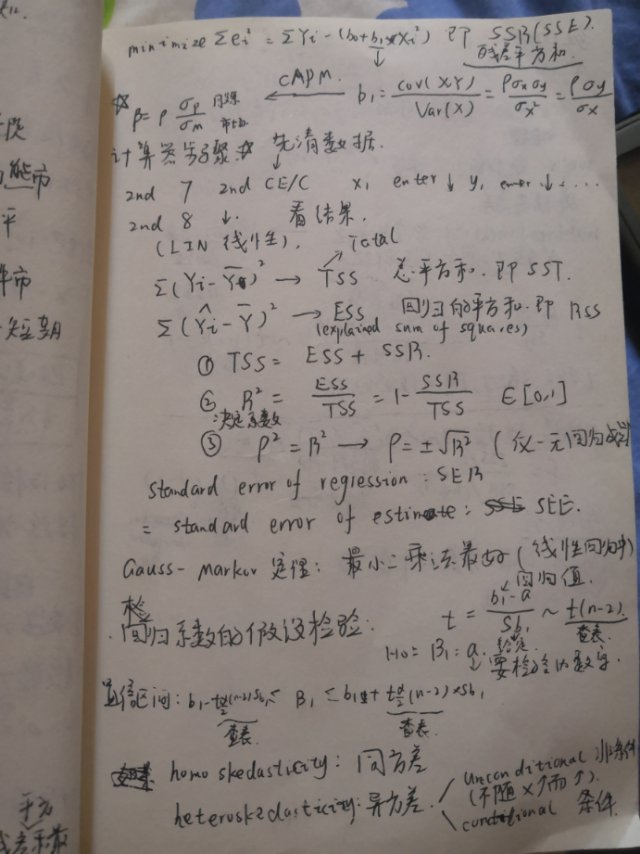 几.
段
能市
平
市
短期
平方
minimize Σei² = ΣYi-(b0+b1*Xi²) 即 SSR(SSE).
残差平方和.
☆ β=ρ σp/σm 市场 ← CAPM. b1 = cov(X,Y)/Var(X) = ρσxσy/σx² = ρσy/σx
计算器步骤☆ 先清数据.
2nd 7 2nd CE/C x1 enter↓ y1 enter↓....
2nd 8 ↓. 看结果.
(LIN 线性).
Total
Σ(Yi-Ȳ)² → TSS 总平方和.即 SST.
Σ(Ŷi-Ȳ)² → ESS 回归的平方和.即 RSS
(explained sum of squares)
① TSS = ESS + SSR.
② R² = ESS/TSS = 1- SSR/TSS ∈[0,1]
:决定系数
③ ρ²=R² → ρ=±√R² (仅一元回归成立)
standard error of regression: SER
= standard error of estimate: SEE.
Gauss-Markov 定理: 最小二乘法最好(线性回归中)
回归值.
检
回归系数的假设检验: t = (b1-a)/Sb1 ~ t(n-2)
查表.
H0= B1=a. 给定.
要检验的数字.
置信区间: b1-tα/2(n-2)Sb1 ≤ B1 ≤ b1+tα/2(n-2)×Sb1
查表. 查表.
homoskedasticity: 同方差
heteroskedasticity: 异方差. unconditional 非条件
(不随X↑而↑).
conditional 条件.